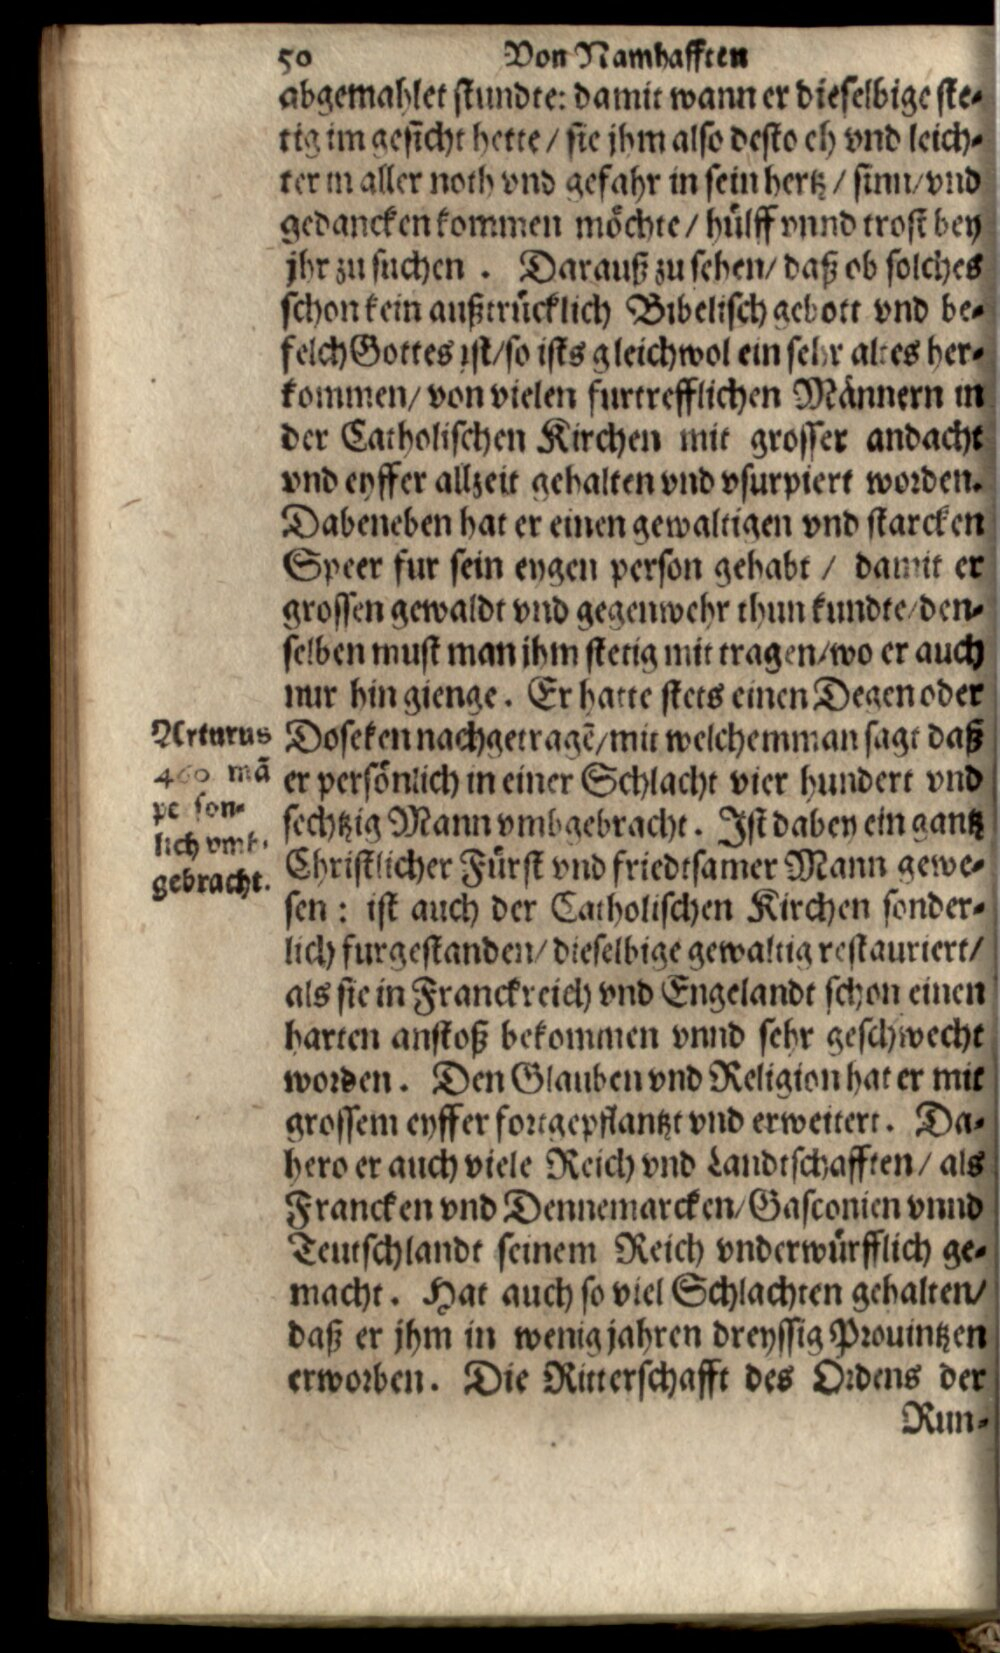 50 Von Namhafften
abgemahlet stundte: damit wann er dieselbige ste-
tig im gesicht hette / sie jhm also desto eh vnd leich-
ter in aller noth vnd gefahr in sein hertz / sinn / vnd
gedancken kommen möchte / hülff vnnd trost bey
jhr zu suchen. Darauß zu sehen / daß ob solches
schon kein außtrücklich Bibelisch gebott vnd be-
felch Gottes ist / so ists gleichwol ein sehr altes her-
kommen / von vielen furtrefflichen Männern in
der Catholischen Kirchen mit grosser andacht
vnd eyffer allzeit gehalten vnd vsurpiert worden.
Dabeneben hat er einen gewaltigen vnd starcken
Speer fur sein eygen person gehabt / damit er
grossen gewaldt vnd gegenwehr thun kundte / den-
selben must man jhm stetig mit tragen / wo er auch
nur hin gienge. Er hatte stets einen Degen oder
Doseken nachgetragē / mit welchem man sagt daß
er persönlich in einer Schlacht vier hundert vnd
sechtzig Mann vmbgebracht. Ist dabey ein gantz
Christlicher Fürst vnd friedtsamer Mann gewe-
sen: ist auch der Catholischen Kirchen sonder-
lich furgestanden / dieselbige gewaltig restauriert /
als sie in Franckreich vnd Engelandt schon einen
harten anstoß bekommen vnnd sehr geschwecht
worden. Den Glauben vnd Religion hat er mit
grossem eyffer fortgepflantzt vnd erweitert. Da-
hero er auch viele Reich vnd Landtschafften / als
Francken vnd Dennemarcken / Gasconien vnnd
Teutschlandt seinem Reich vnderwürfflich ge-
macht. Hat auch so viel Schlachten gehalten /
daß er jhm in wenig jahren dreyssig Prouintzen
erworben. Die Ritterschafft des Ordens der
Run-
Arturus
460 mā
person-
lich vmb-
gebracht.